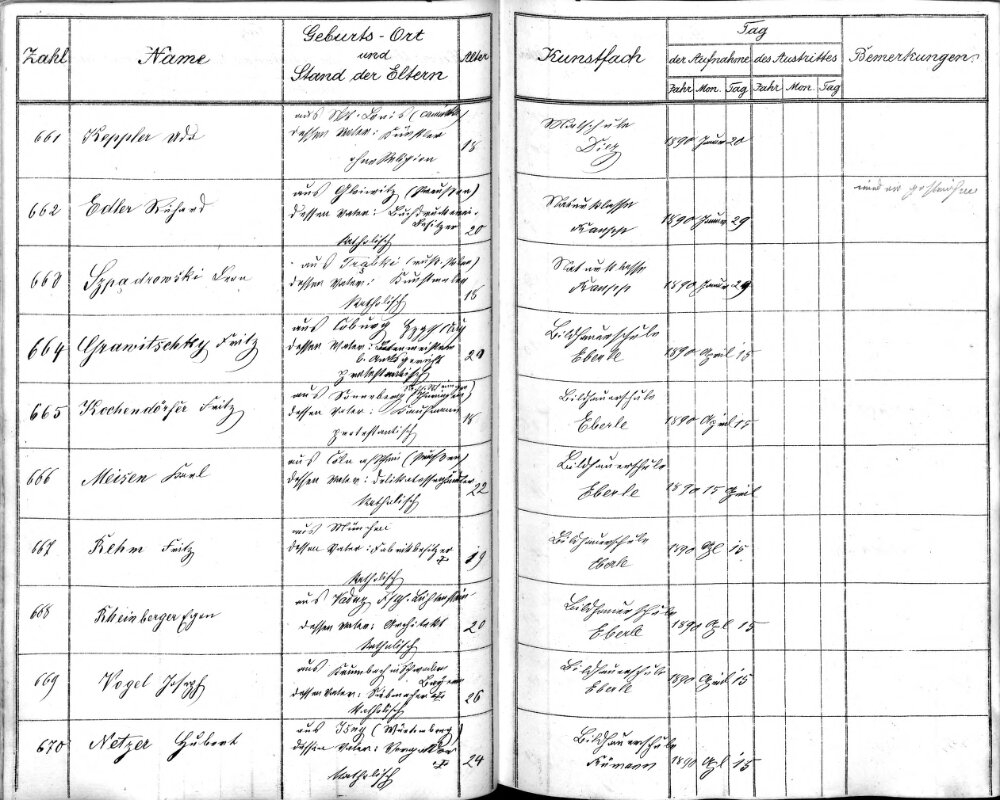 Zahl Name Geburts-Ort und Stand der Eltern Alter Kunstfach Tag der Aufnahme des Austrittes Bemerkungen
Jahr Mon. Tag Jahr Mon. Tag
661 Keppler Udo
aus St. Louis (Amerika)
dessen Vater: Künstler
ohne Religion
18
Malschule
Diez
1890 Januar 20
662 Edler Richard
aus Gleiwitz (Preußen)
dessen Vater: Buchdruckerei-
Besitzer
katholisch
20
Naturklasse
1890 Januar 29
663
aus
dessen Vater: Kunstmaler
katholisch
18
Naturklasse
1890 Januar 29
664 Grawitschky Fritz
aus Coburg
dessen Vater:
b. Amtsgericht
protestantisch
20
Bildhauerschule
Eberle
1890 April 15
665 Kochendörfer Fritz
aus Sonneberg
dessen Vater: Kaufmann
protestantisch
18
Bildhauerschule
Eberle
1890 April 15
666 Meisen Karl
aus Cöln a/Rhein (Preußen)
dessen Vater: Delikatessenhändler
katholisch
22
Bildhauerschule
Eberle
1890 15 April
667 Rehm Fritz
aus München
dessen Vater: Fabrikbesitzer
katholisch
19
Bildhauerschule
Eberle
1890 Apl 15
668 Rheinberger Egon
aus Vaduz Fsth. Lichtenstein
dessen Vater: Architekt
katholisch
20
Bildhauerschule
Eberle
1890 Apl 15
669 Vogel Joseph
aus Krumbach i/Schwaben
Bayern
dessen Vater: Siebmacher
katholisch
26
Bildhauerschule
Eberle
1890 April 15
670 Netzer Hubert
aus Isny (Würtemberg)
dessen Vater:
katholisch
24
Bildhauerschule
Rümann
1890 Apl 15